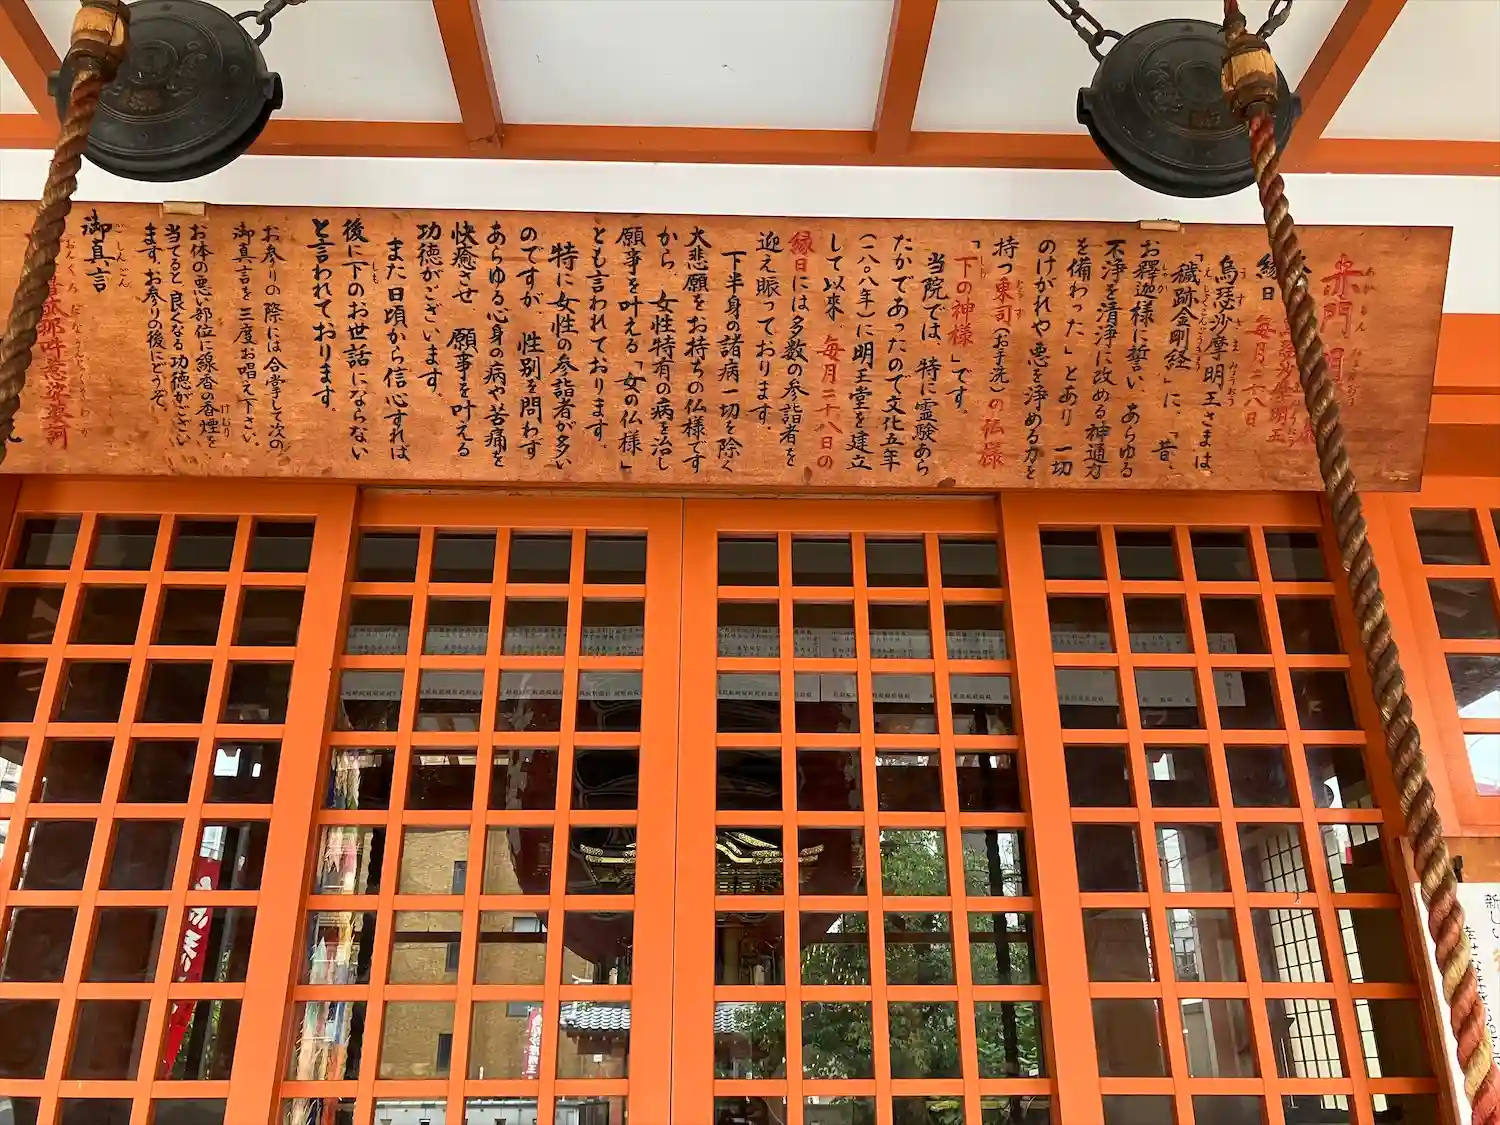 赤門明
縁日 毎月二十八日
烏瑟沙摩明王さまは、
「穢跡金剛経」に、「昔、
お釋迦様に誓い、あらゆる
不浄を清浄に改める神通力
を備わった」とあり 一切
のけがれや悪を浄める力を
持つ東司(お手洗)の仏様
「下の神様」です。
当院では、特に霊験あら
たかであったので文化五年
(一八〇八年)に明王堂を建立
して以来、毎月二十八日の
縁日には多数の参詣者を
迎え賑っております。
下半身の諸病一切を除く
大悲願をお持ちの仏様です
から、女性特有の病を治し
願事を叶える「女の仏様」
とも言われております。
特に女性の参詣者が多い
のですが、性別を問わず
あらゆる心身の病や苦痛を
快癒させ、願事を叶える
功徳がございます。
また日頃から信心すれば
後に下のお世話にならない
と言われております。
お参りの際には合掌して次の
御真言を三度お唱え下さい。
お体の悪い部位に線香の香煙を
当てると良くなる功徳がござい
ます。お参りの後にどうぞ。
御真言